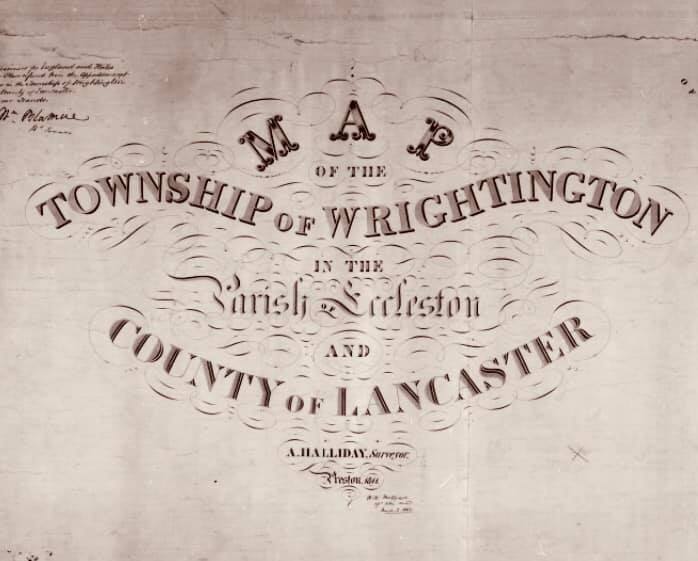 for England and Wales
in the Township of Wrightington
County of Lancaster
Wm Blamire
MAP
OF THE
TOWNSHIP OF WRIGHTINGTON
IN THE
Parish of Eccleston
AND
COUNTY OF LANCASTER
A. HALLIDAY, Surveyor,
Preston,